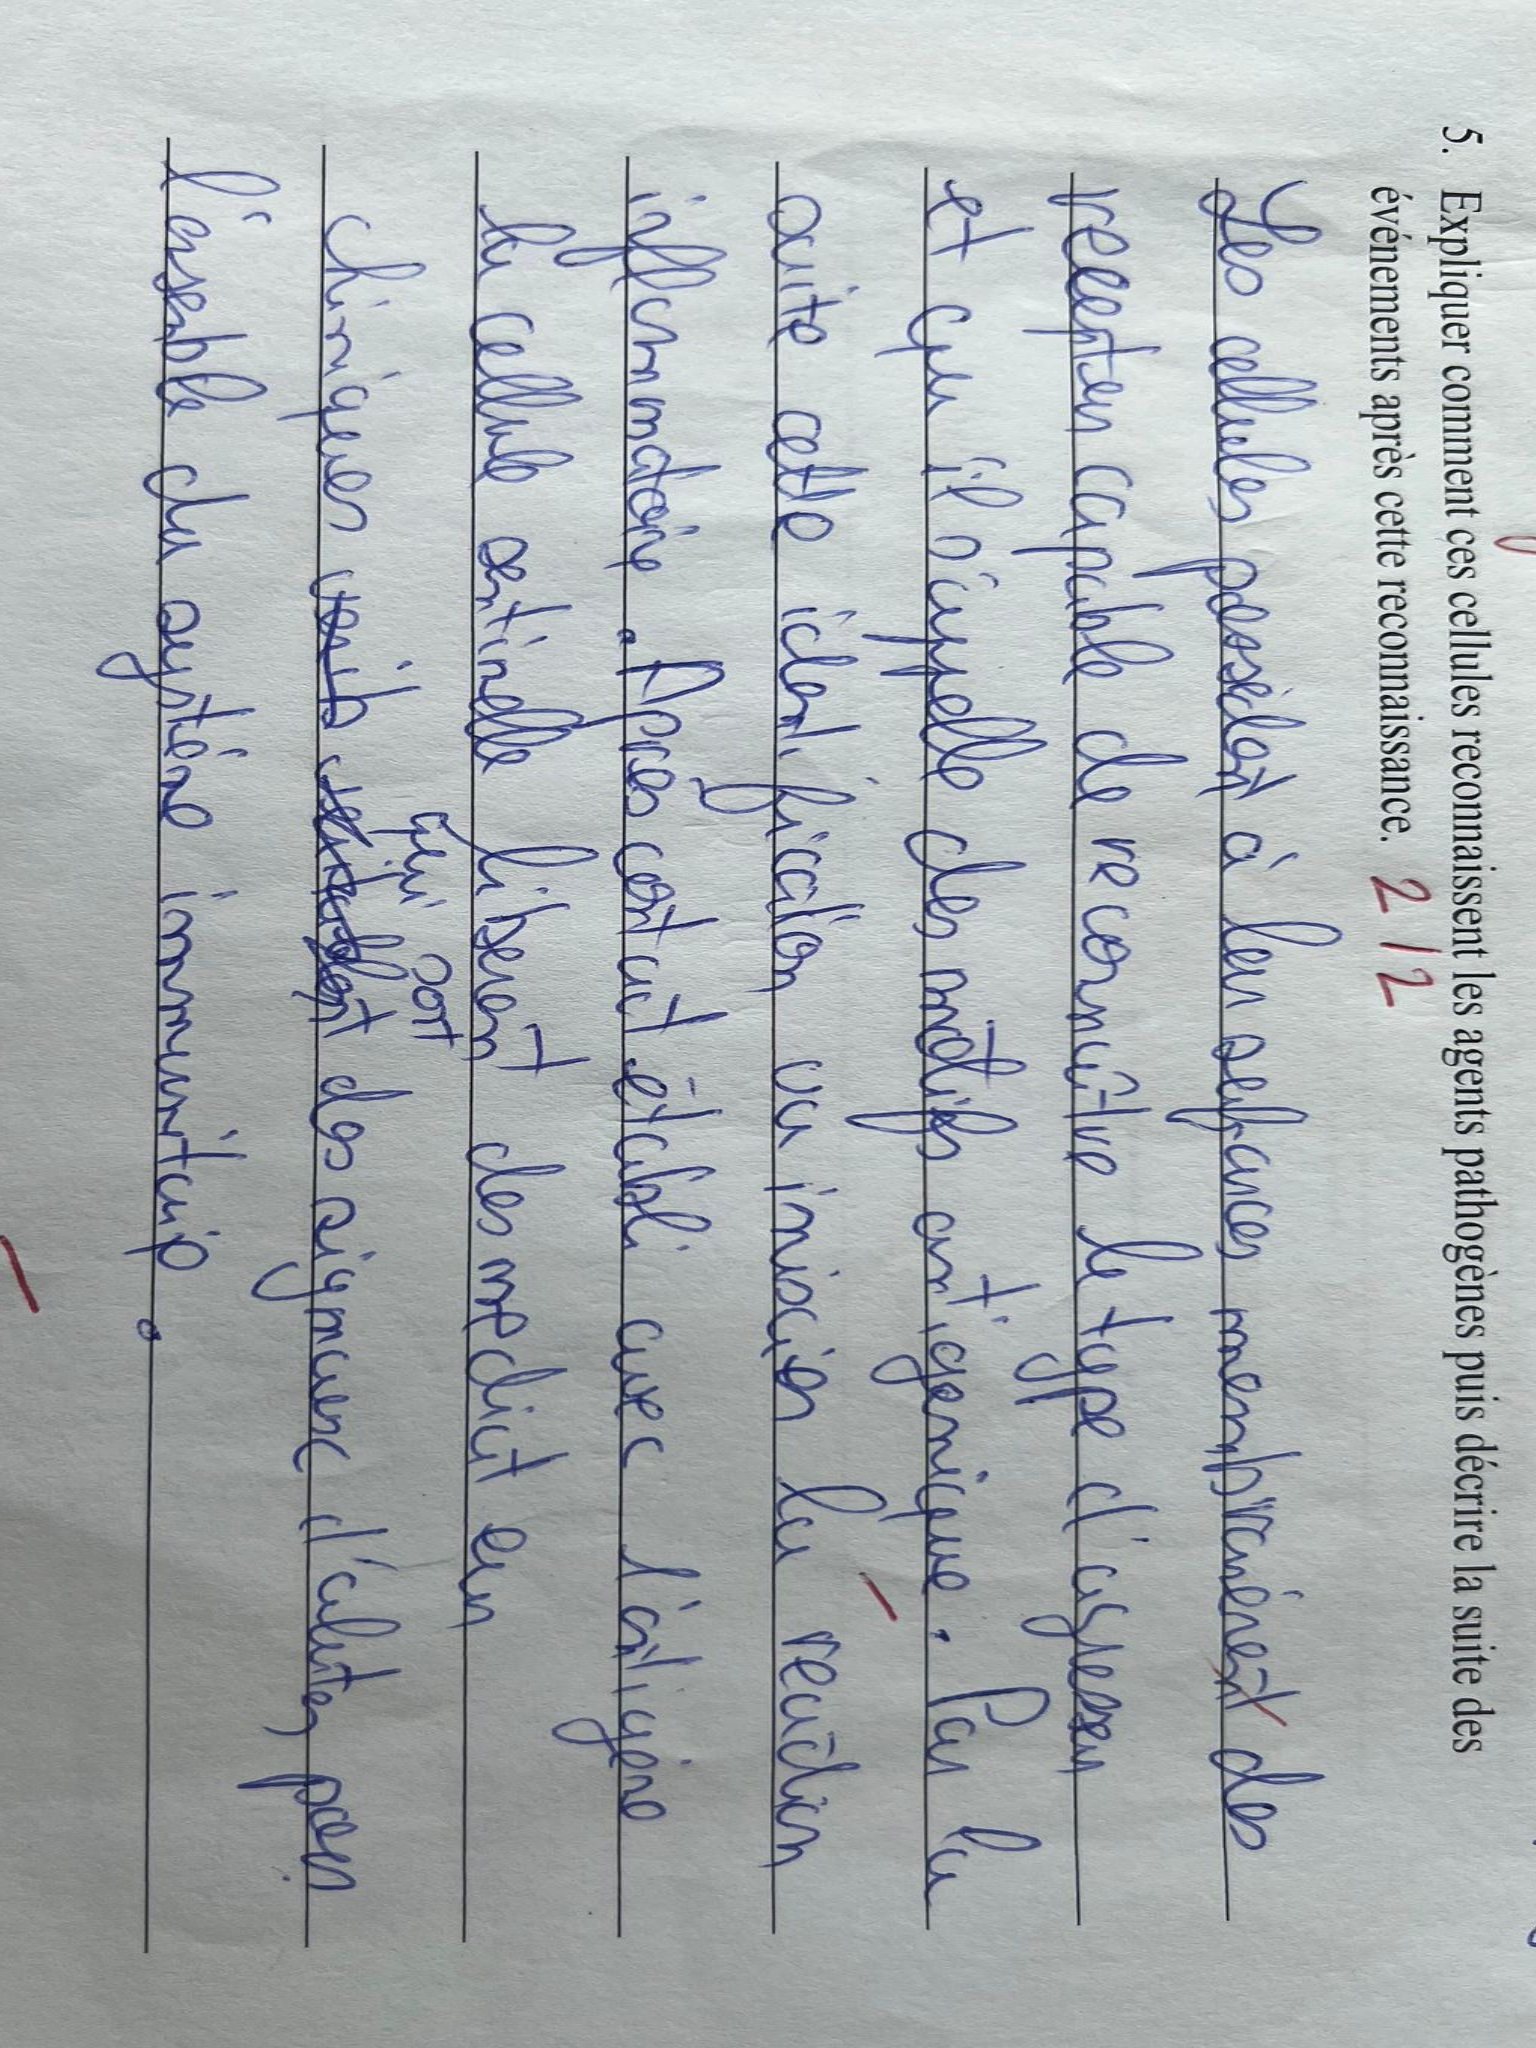 5. Expliquer comment ces cellules reconnaissent les agents pathogènes puis décrire la suite des
événements après cette reconnaissance. 2/2
Les cellules possèdent à leur surfaces membrainénent des
recepteur capable de reconnaître le type d'agresseur
et qu'il s'appelle des motifs antigenique. Par la
suite cette identification va iniscier la reaction
inflammatoire. Apres contact établi avec l'antigène
la cellule sentinelle liberent des mediateur
qui sont
chimiques des signaux d'alerte, pour
l'ensemble du système immunitaire.